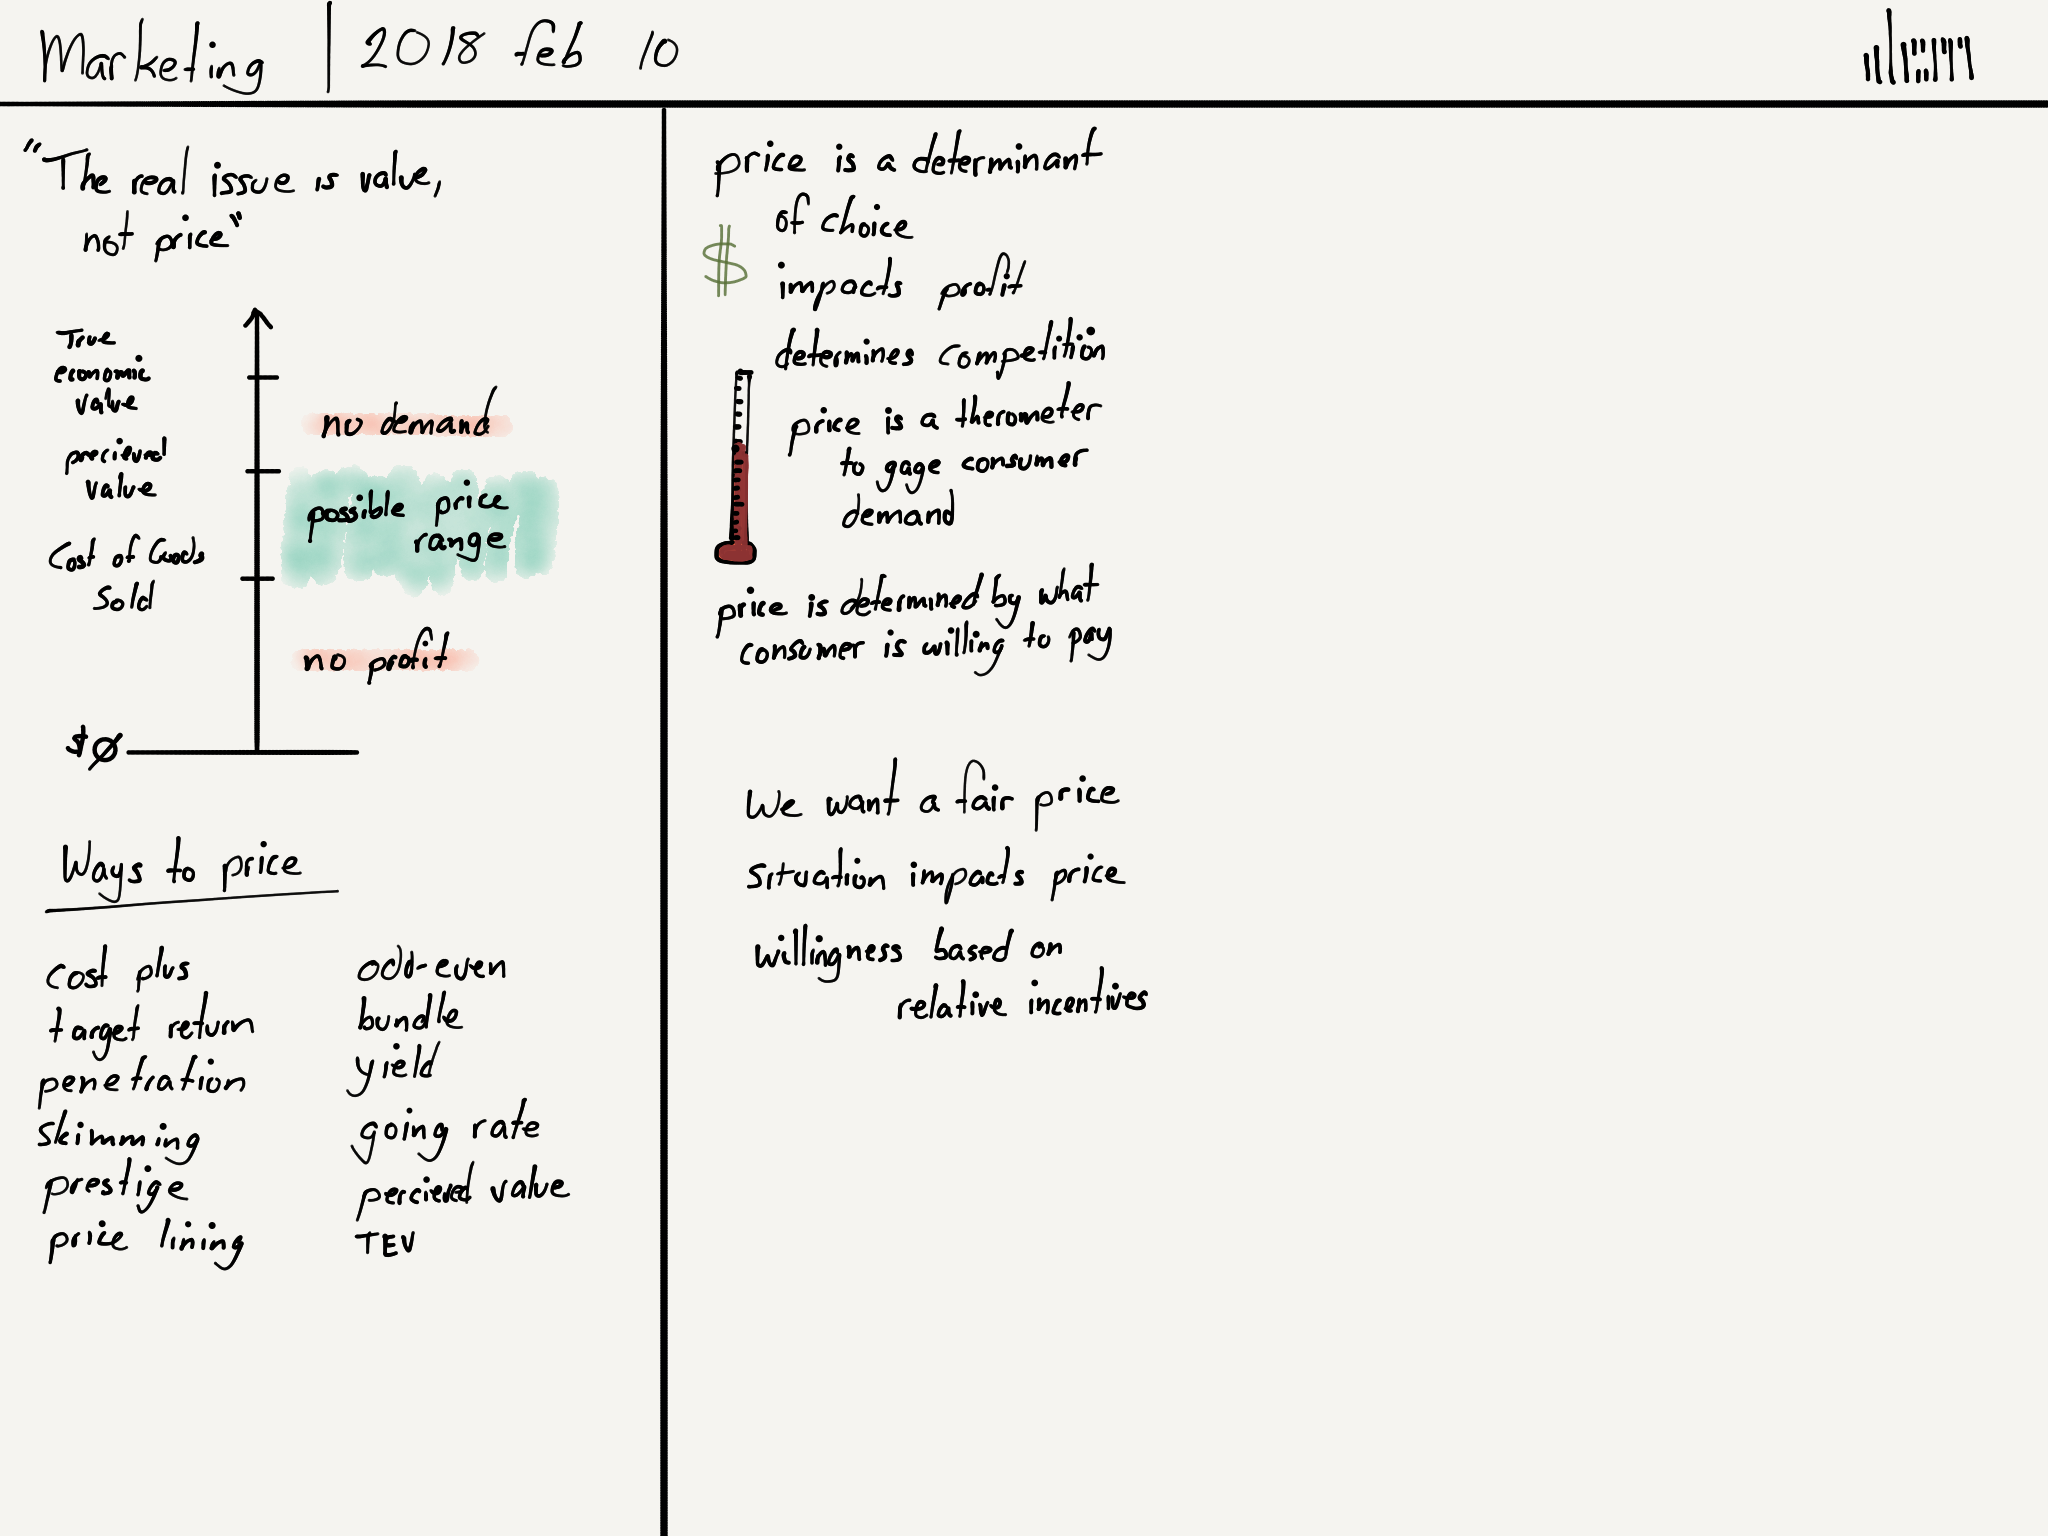 Marketing | 2018 feb 10
"The real issue is value,
not price"
True
economic
value
no demand
precieved
value
possible price
range
Cost of Goods
Sold
no profit
$0
Ways to price
cost plus
target return
penetration
skimming
prestige
price lining
odd-even
bundle
yield
going rate
percieved value
TEV
price is a determinant
of choice
$
impacts profit
determines competition
price is a therometer
to gage consumer
demand
price is determined by what
consumer is willing to pay
We want a fair price
Situation impacts price
willingness based on
relative incentives